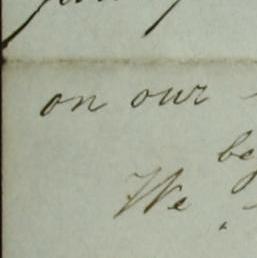 on our
be
We